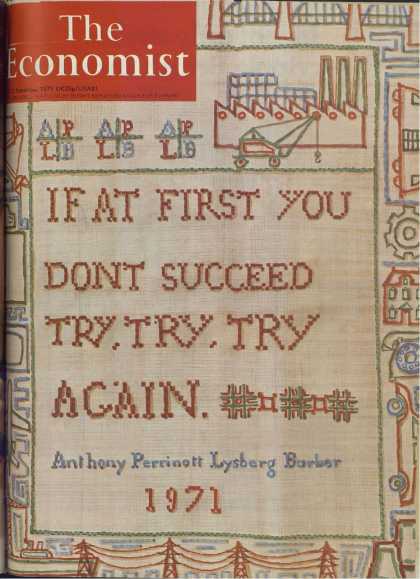 The
Economist
A P A P A P
L B L B L B
IF AT FIRST YOU
DONT SUCCEED
TRY, TRY, TRY
AGAIN.
Anthony Perrinott Lysberg Barber
1971